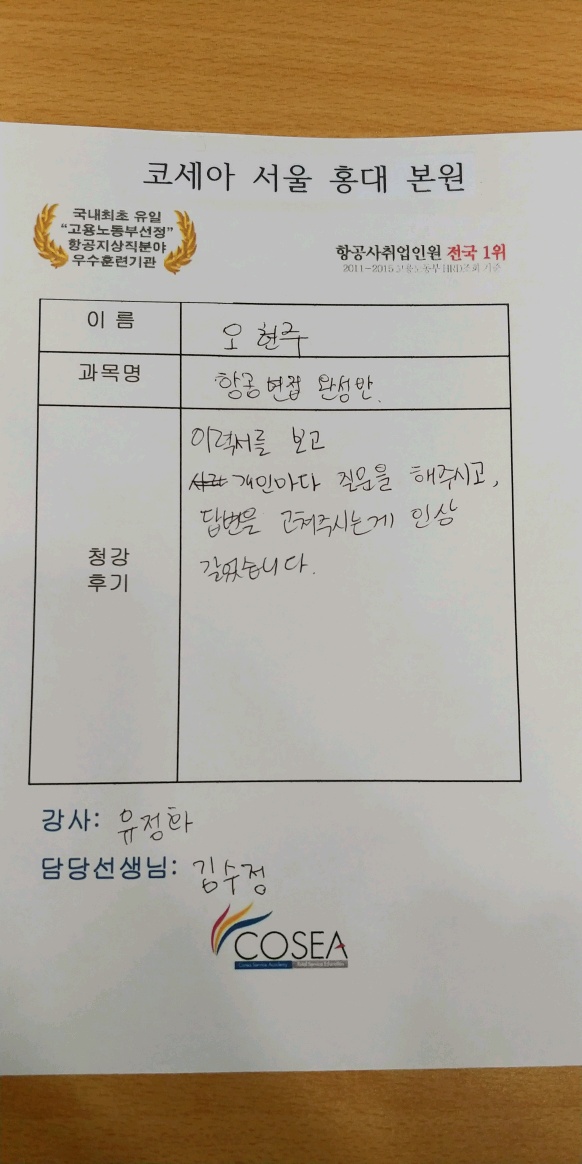 코세아 서울 홍대 본원
국내최초 유일
“고용노동부선정”
항공지상직분야
우수훈련기관
항공사취업인원 전국 1위
2011-2015 고용노동부HRD조회 기준
이 름
오 현주
과목명
항공 면접 완성반.
청강
후기
이력서를 보고
개인마다 질문을 해주시고,
답변을 고쳐주시는게 인상
깊었습니다.
강사: 유정화
담당선생님: 김수정
COSEA